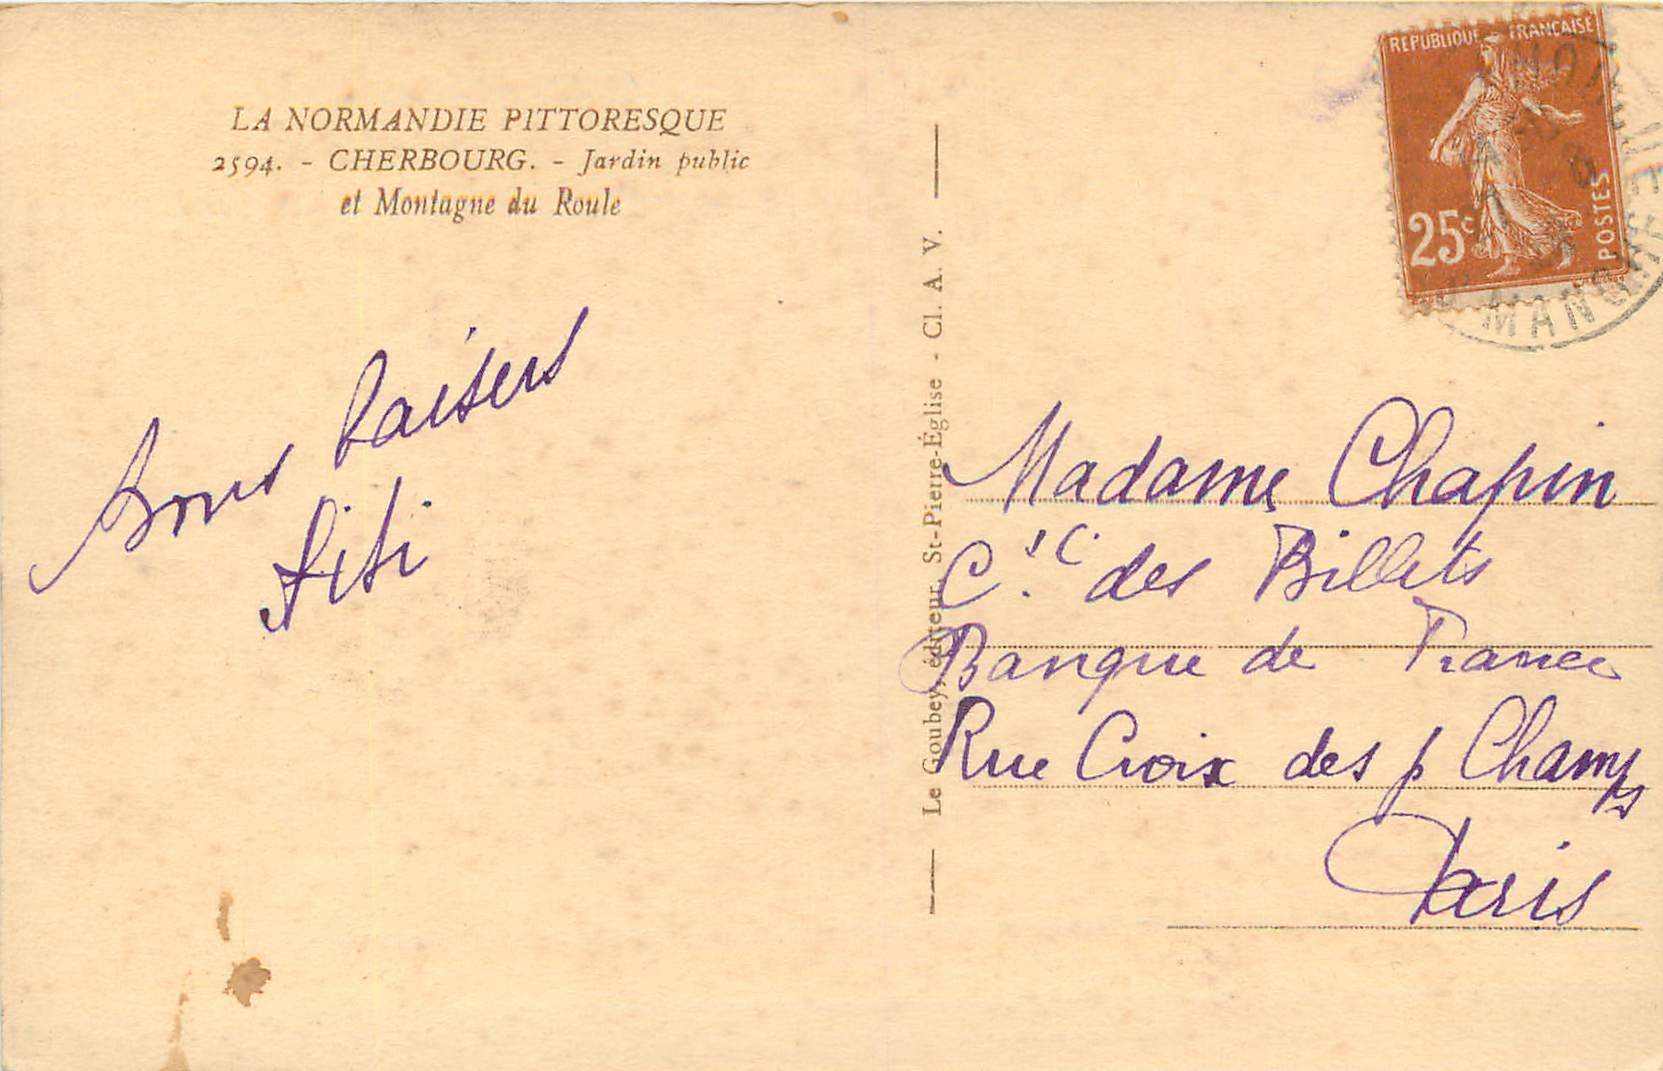 LA NORMANDIE PITTORESQUE
2594. - CHERBOURG. - Jardin public
et Montagne du Roule
Bons baisers
Fifi
Le Goubey, éditeur, St-Pierre-Église - Cl. A. V.
REPUBLIQUE FRANCAISE
25c
POSTES
MANCHE
Madame Chapin
des Billets
Banque de France
Rue Croix des p Champs
Paris